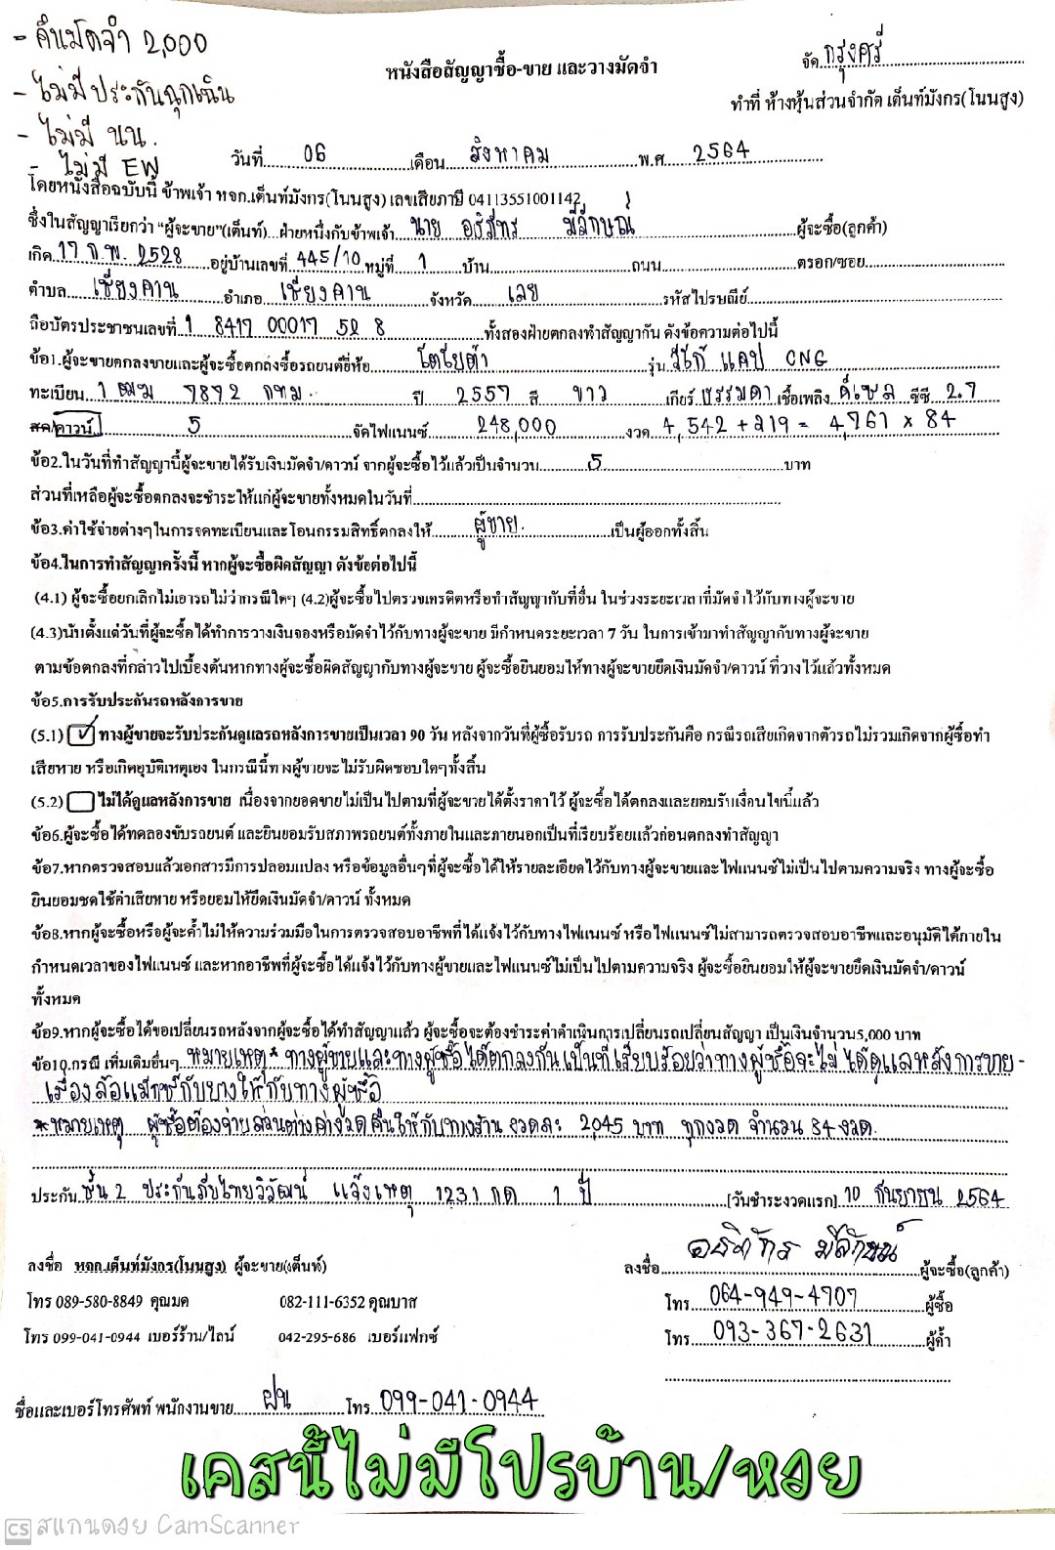 - คืนมัดจำ 2,000
- ไม่มีประกันฉุกเฉิน
- ไม่มี นน.
- ไม่มี EW
จัด กรุงศรี
หนังสือสัญญาซื้อ-ขาย และวางมัดจำ
ทำที่ ห้างหุ้นส่วนจำกัด เต็นท์มังกร(โนนสูง)
วันที่ 06 เดือน สิงหาคม พ.ศ. 2564
โดยหนังสือฉบับนี้ ข้าพเจ้า หจก.เต็นท์มังกร(โนนสูง) เลขเสียภาษี 0411355100114​2
ซึ่งในสัญญาเรียกว่า "ผู้จะขาย"(เต็นท์)...ฝ่ายหนึ่งกับข้าพเจ้า นาย มีลักษณ์ ผู้จะซื้อ(ลูกค้า)
เกิด 17 ก.พ. 2528 อยู่บ้านเลขที่ 445/10 หมู่ที่ 1 บ้าน ถนน ตรอก/ซอย
ตำบล เชียงคาน อำเภอ เชียงคาน จังหวัด เลย รหัสไปรษณีย์
ถือบัตรประชาชนเลขที่ 1 8417 00017 52 8 ทั้งสองฝ่ายตกลงทำสัญญากัน ดังข้อความต่อไปนี้
ข้อ1.ผู้จะขายตกลงขายและผู้จะซื้อตกลงซื้อรถยนต์ยี่ห้อ โตโยต้า รุ่น วีโก้ แคป CNG
ทะเบียน 1 ฒฆ 7872 กทม. ปี 2557 สี ขาว เกียร์ ธรรมดา เชื้อเพลิง ดีเซล ซีซี 2.7
สด/ดาวน์ 5 จัดไฟแนนซ์ 248,000 งวด 4,542 + 219 = 4,761 x 84
ข้อ2.ในวันที่ทำสัญญานี้ผู้จะขายได้รับเงินมัดจำ/ดาวน์ จากผู้จะซื้อไว้แล้วเป็นจำนวน 5 บาท
ส่วนที่เหลือผู้จะซื้อตกลงจะชำระให้แก่ผู้จะขายทั้งหมดในวันที่
ข้อ3.ค่าใช้จ่ายต่างๆในการจดทะเบียนและโอนกรรมสิทธิ์ตกลงให้ ผู้ขาย. เป็นผู้ออกทั้งสิ้น
ข้อ4.ในการทำสัญญาครั้งนี้ หากผู้จะซื้อผิดสัญญา ดังข้อต่อไปนี้
(4.1) ผู้จะซื้อยกเลิกไม่เอารถไม่ว่ากรณีใดๆ (4.2)ผู้จะซื้อไปตรวจเครดิตหรือทำสัญญากับที่อื่น ในช่วงระยะเวลาที่มัดจำไว้กับทางผู้จะขาย
(4.3)นับตั้งแต่วันที่ผู้จะซื้อได้ทำการวางเงินจองหรือมัดจำไว้กับทางผู้จะขาย มีกำหนดระยะเวลา 7 วัน ในการเข้ามาทำสัญญากับทางผู้จะขาย
ตามข้อตกลงที่กล่าวไปเบื้องต้นหากทางผู้จะซื้อผิดสัญญากับทางผู้จะขาย ผู้จะซื้อยินยอมให้ทางผู้จะขายยึดเงินมัดจำ/ดาวน์ ที่วางไว้แล้วทั้งหมด
ข้อ5.การรับประกันรถหลังการขาย
(5.1) ✓ ทางผู้ขายจะรับประกันดูแลรถหลังการขายเป็นเวลา 90 วัน หลังจากวันที่ผู้ซื้อรับรถ การรับประกันคือ กรณีรถเสียเกิดจากตัวรถไม่รวมเกิดจากผู้ซื้อทำ
เสียหาย หรือเกิดอุบัติเหตุเอง ในกรณีนี้ทางผู้ขายจะไม่รับผิดชอบใดๆทั้งสิ้น
(5.2) ไม่ได้ดูแลหลังการขาย เนื่องจากยอดขายไม่เป็นไปตามที่ผู้จะขายได้ตั้งราคาไว้ ผู้จะซื้อได้ตกลงและยอมรับเงื่อนไขนี้แล้ว
ข้อ6.ผู้จะซื้อได้ทดลองขับรถยนต์ และยินยอมรับสภาพรถยนต์ทั้งภายในและภายนอกเป็นที่เรียบร้อยแล้วก่อนตกลงทำสัญญา
ข้อ7.หากตรวจสอบแล้วเอกสารมีการปลอมแปลง หรือข้อมูลอื่นๆที่ผู้จะซื้อได้ให้รายละเอียดไว้กับทางผู้จะขายและไฟแนนซ์ไม่เป็นไปตามความจริง ทางผู้จะซื้อ
ยินยอมชดใช้ค่าเสียหาย หรือยอมให้ยึดเงินมัดจำ/ดาวน์ ทั้งหมด
ข้อ8.หากผู้จะซื้อหรือผู้จะค้ำไม่ให้ความร่วมมือในการตรวจสอบอาชีพที่ได้แจ้งไว้กับทางไฟแนนซ์ หรือไฟแนนซ์ไม่สามารถตรวจสอบอาชีพและอนุมัติได้ภายใน
กำหนดเวลาของไฟแนนซ์ และหากอาชีพที่ผู้จะซื้อได้แจ้งไว้กับทางผู้ขายและไฟแนนซ์ไม่เป็นไปตามความจริง ผู้จะซื้อยินยอมให้ผู้จะขายยึดเงินมัดจำ/ดาวน์
ทั้งหมด
ข้อ9.หากผู้จะซื้อได้ขอเปลี่ยนรถหลังจากผู้จะซื้อได้ทำสัญญาแล้ว ผู้จะซื้อจะต้องชำระค่าดำเนินการเปลี่ยนรถเปลี่ยนสัญญา เป็นเงินจำนวน5,000 บาท
ข้อ10.กรณี เพิ่มเติมอื่นๆ หมายเหตุ* ทางผู้ขายและทางผู้ซื้อ ได้ตกลงกันเป็นที่เรียบร้อยว่าทางผู้ซื้อจะไม่ ได้ดูแลหลังการขาย-
เรื่องล้อแม็กซ์กับยางให้กับทางผู้ซื้อ
*หมายเหตุ ผู้ซื้อต้องจ่ายส่วนต่างค่างวดคืนให้กับทางร้าน งวดละ 2,045 บาท ทุกงวด จำนวน 84 งวด.
ประกัน ชั้น 2 ประกันภัยไทยวิวัฒน์ แจ้งเหตุ 1231 กด 1 ปี [วันชำระงวดแรก] 10 กันยายน 2564
ลงชื่อ หจก.เต็นท์มังกร(โนนสูง) ผู้จะขาย(เต็นท์)
ลงชื่อ มีลักษณ์ ผู้จะซื้อ(ลูกค้า)
โทร 089-580-8849 คุณมด 082-111-6352 คุณบาส
โทร 064-949-4707 ผู้ซื้อ
โทร 099-041-0944 เบอร์ร้าน/ไลน์ 042-295-686 เบอร์แฟกซ์
โทร 093-367-2631 ผู้ค้ำ
ชื่อและเบอร์โทรศัพท์ พนักงานขาย ฝน โทร 099-041-0944
เคสนี้ไม่มีโปรบ้าน/หอย
CS สแกนด้วย CamScanner